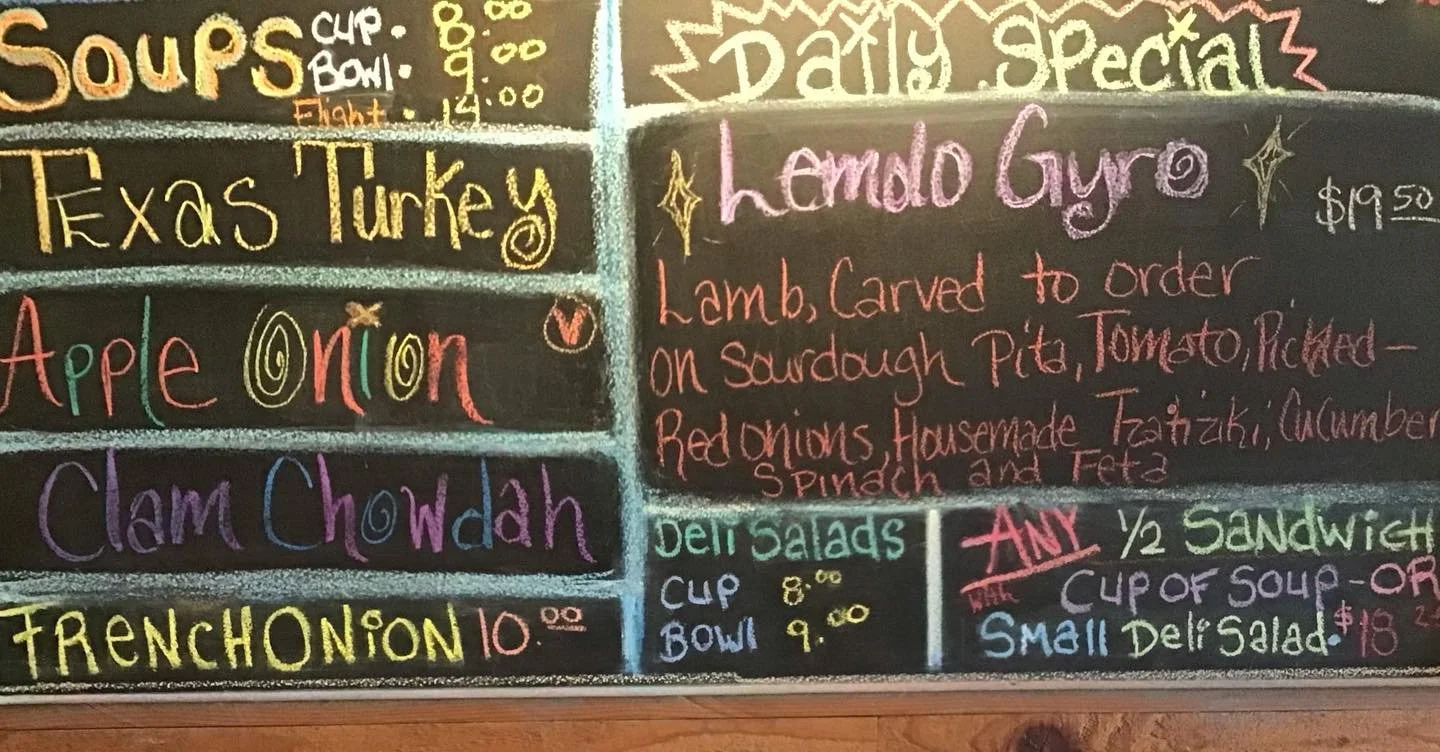 Soups
Cup. 8.00
Bowl. 9.00
Flight. 14.00
Texas Turkey
Apple Onion V
Clam Chowdah
FRENCH ONiON 10.00
Daily Special
Lemolo Gyro
$19 50
Lamb, Carved to order
on Sourdough Pita, Tomato, Pickled-
Red onions, Housemade Tzatiziki, Cucumber
Spinach and Feta
Deli Salads
Cup 8.00
Bowl 9.00
ANY 1/2 SANDWiCH
with CUP OF SOUP - OR
Small Deli Salad. $18